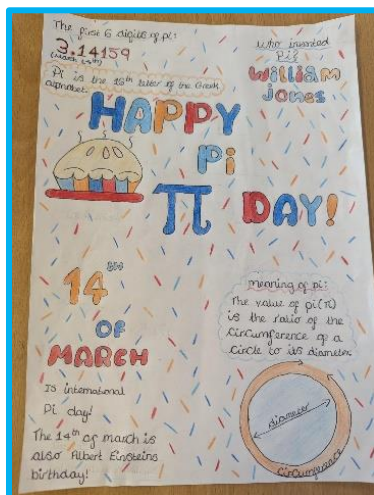 The first 6 digits of pi:
3.14159
(March 14th)
Pi is the 16th letter of the Greek
alphabet.
Who invented
Pi?
William
Jones
HAPPY
Pi
π DAY!
14TH
OF
MARCH
Is international
Pi day!
The 14th of march is
also Albert Einsteins
birthday!
meaning of pi:
The value of pi(π)
is the ratio of the
circumference of a
circle to its diameter
Diameter
Circumference